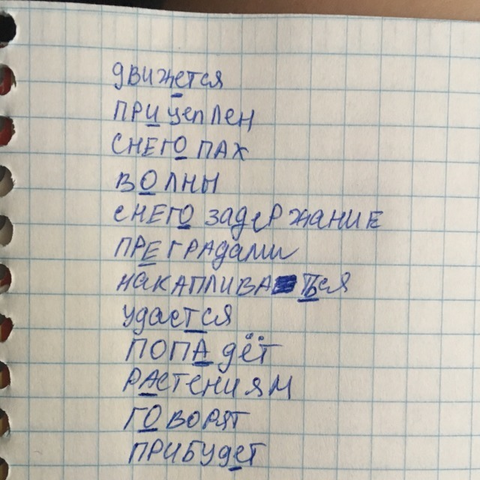 движется
прицеплен
снегопах
волны
снегозадержание
преградами
накапливаться
удастся
попадёт
растениям
говорят
прибудет